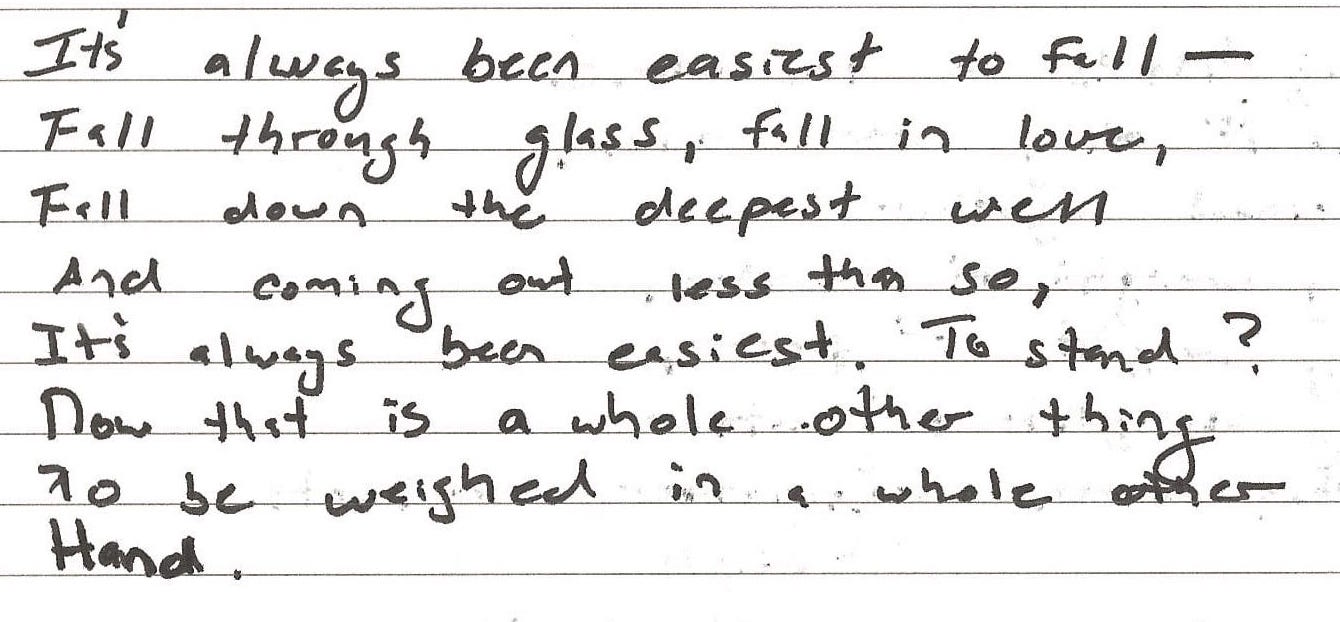 It's always been easiest to fall —
Fall through glass, fall in love,
Fall down the deepest well
And coming out less than so,
It's always been easiest. To stand?
Now that is a whole other thing
To be weighed in a whole other
Hand.